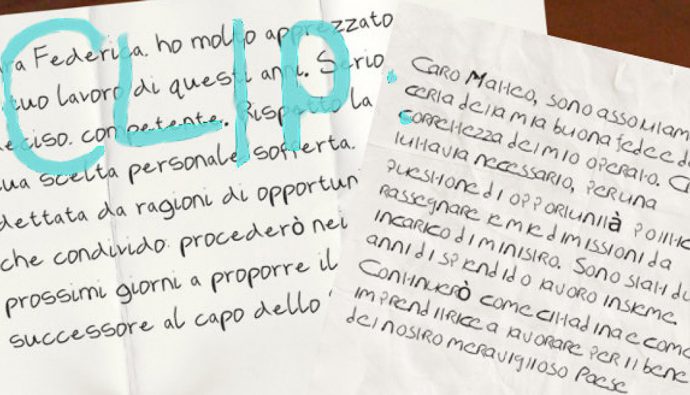 CLIP
ra Federica. ho molto apprezzato
tuo lavoro di questi anni. Serio
eciso. competente. Rispetto la
ua scelta personale sofferta.
dettata da ragioni di opportun
che condivido. procederò nei
prossimi giorni a proporre il
successore al capo dello
Caro Matteo, sono assolutam
certa della mia buona fede e d
correttezza del mio operato. C
tuttavia necessario, per una
questione di opportunità politic
rassegnare le mie dimissioni da
incarico di ministro. Sono stati du
anni di splendido lavoro insieme.
Continuerò come cittadina e come
imprenditrice a lavorare per il bene
del nostro meraviglioso Paese